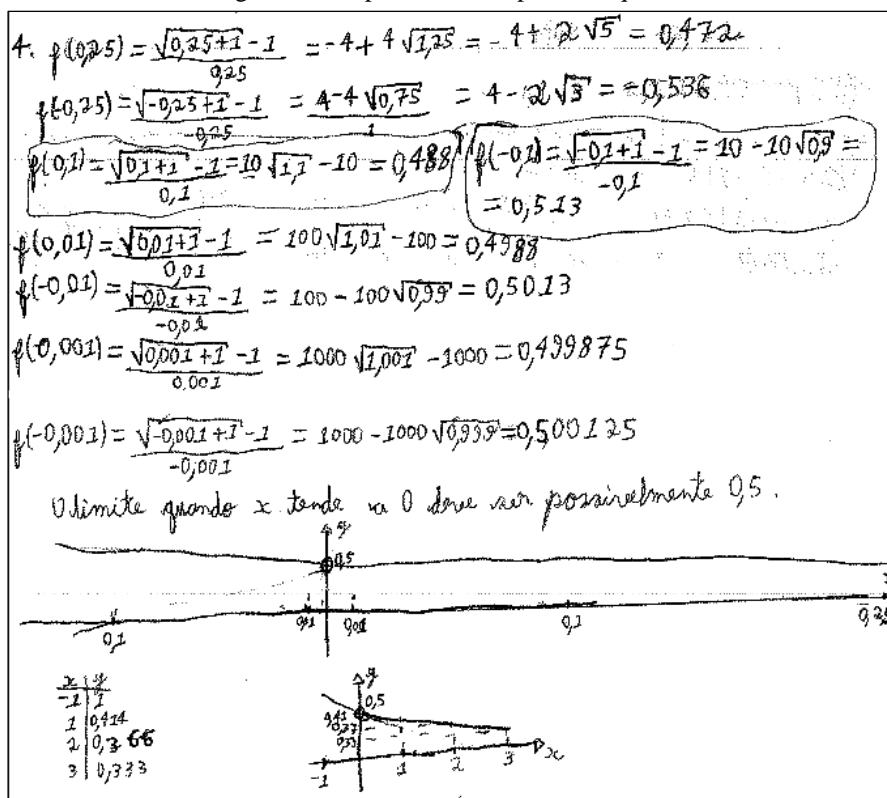 4. f(0,25) = √(0,25+1) - 1 / 0,25 = -4 + 4√1,25 = -4 + 2√5 = 0,472
f(-0,25) = √(-0,25+1) - 1 / -0,25 = 4-4√0,75 / 1 = 4 - 2√3 = 0,536
f(0,1) = √(0,1+1) - 1 / 0,1 = 10√1,1 - 10 = 0,488
f(-0,1) = √(-0,1+1) - 1 / -0,1 = 10 - 10√0,9 =
= 0,513
f(0,01) = √(0,01+1) - 1 / 0,01 = 100√1,01 - 100 = 0,4988
f(-0,01) = √(-0,01+1) - 1 / -0,01 = 100 - 100√0,99 = 0,5013
f(0,001) = √(0,001+1) - 1 / 0,001 = 1000√1,001 - 1000 = 0,499875
f(-0,001) = √(-0,001+1) - 1 / -0,001 = 1000 - 1000√0,999 = 0,500125
O limite quando x tende a 0 deve ser possivelmente 0,5.
y
0,5
0,1 0,01 0,01 0,1 0,25
x | y
-1 | 1
1 | 0,414
2 | 0,366
3 | 0,333
y
0,5
0,41
0,37
0,33
-1 1 2 3 x